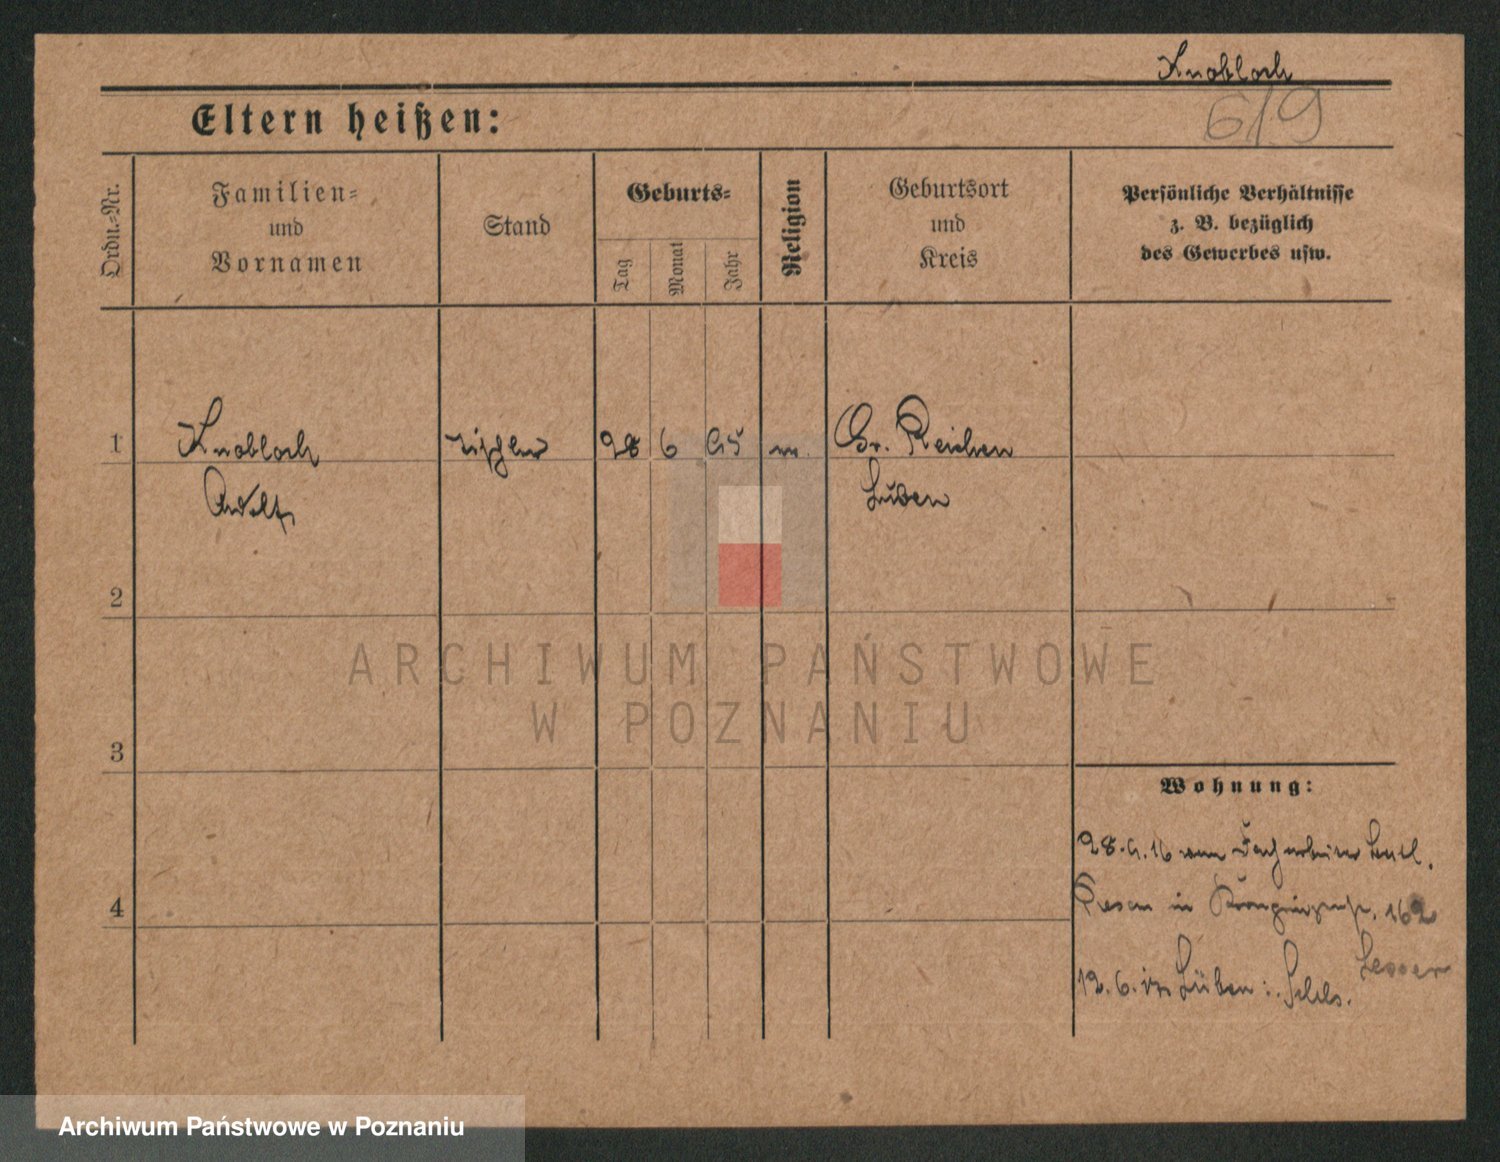 Knobloch
619
Eltern heißen:
Ordn.=Nr.
Familien=
und
Vornamen
Stand
Geburts=
Tag
Monat
Jahr
Religion
Geburtsort
und
Kreis
Persönliche Verhältnisse
z. B. bezüglich
des Gewerbes usw.
1 Knobloch Tischler 28 6 95 Gr. Reichen
Adolf Lüben
2
3
4
Wohnung:
28. 16
Posen in 162
12. 6. in Lüben: Schls.
Lesser
ARCHIWUM PAŃSTWOWE
W POZNANIU
Archiwum Państwowe w Poznaniu